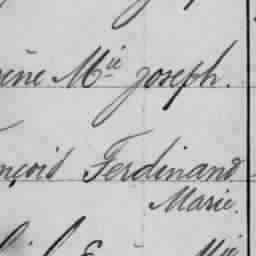 ène Mie Joseph.
nçois Ferdinand
Marie.
Mie